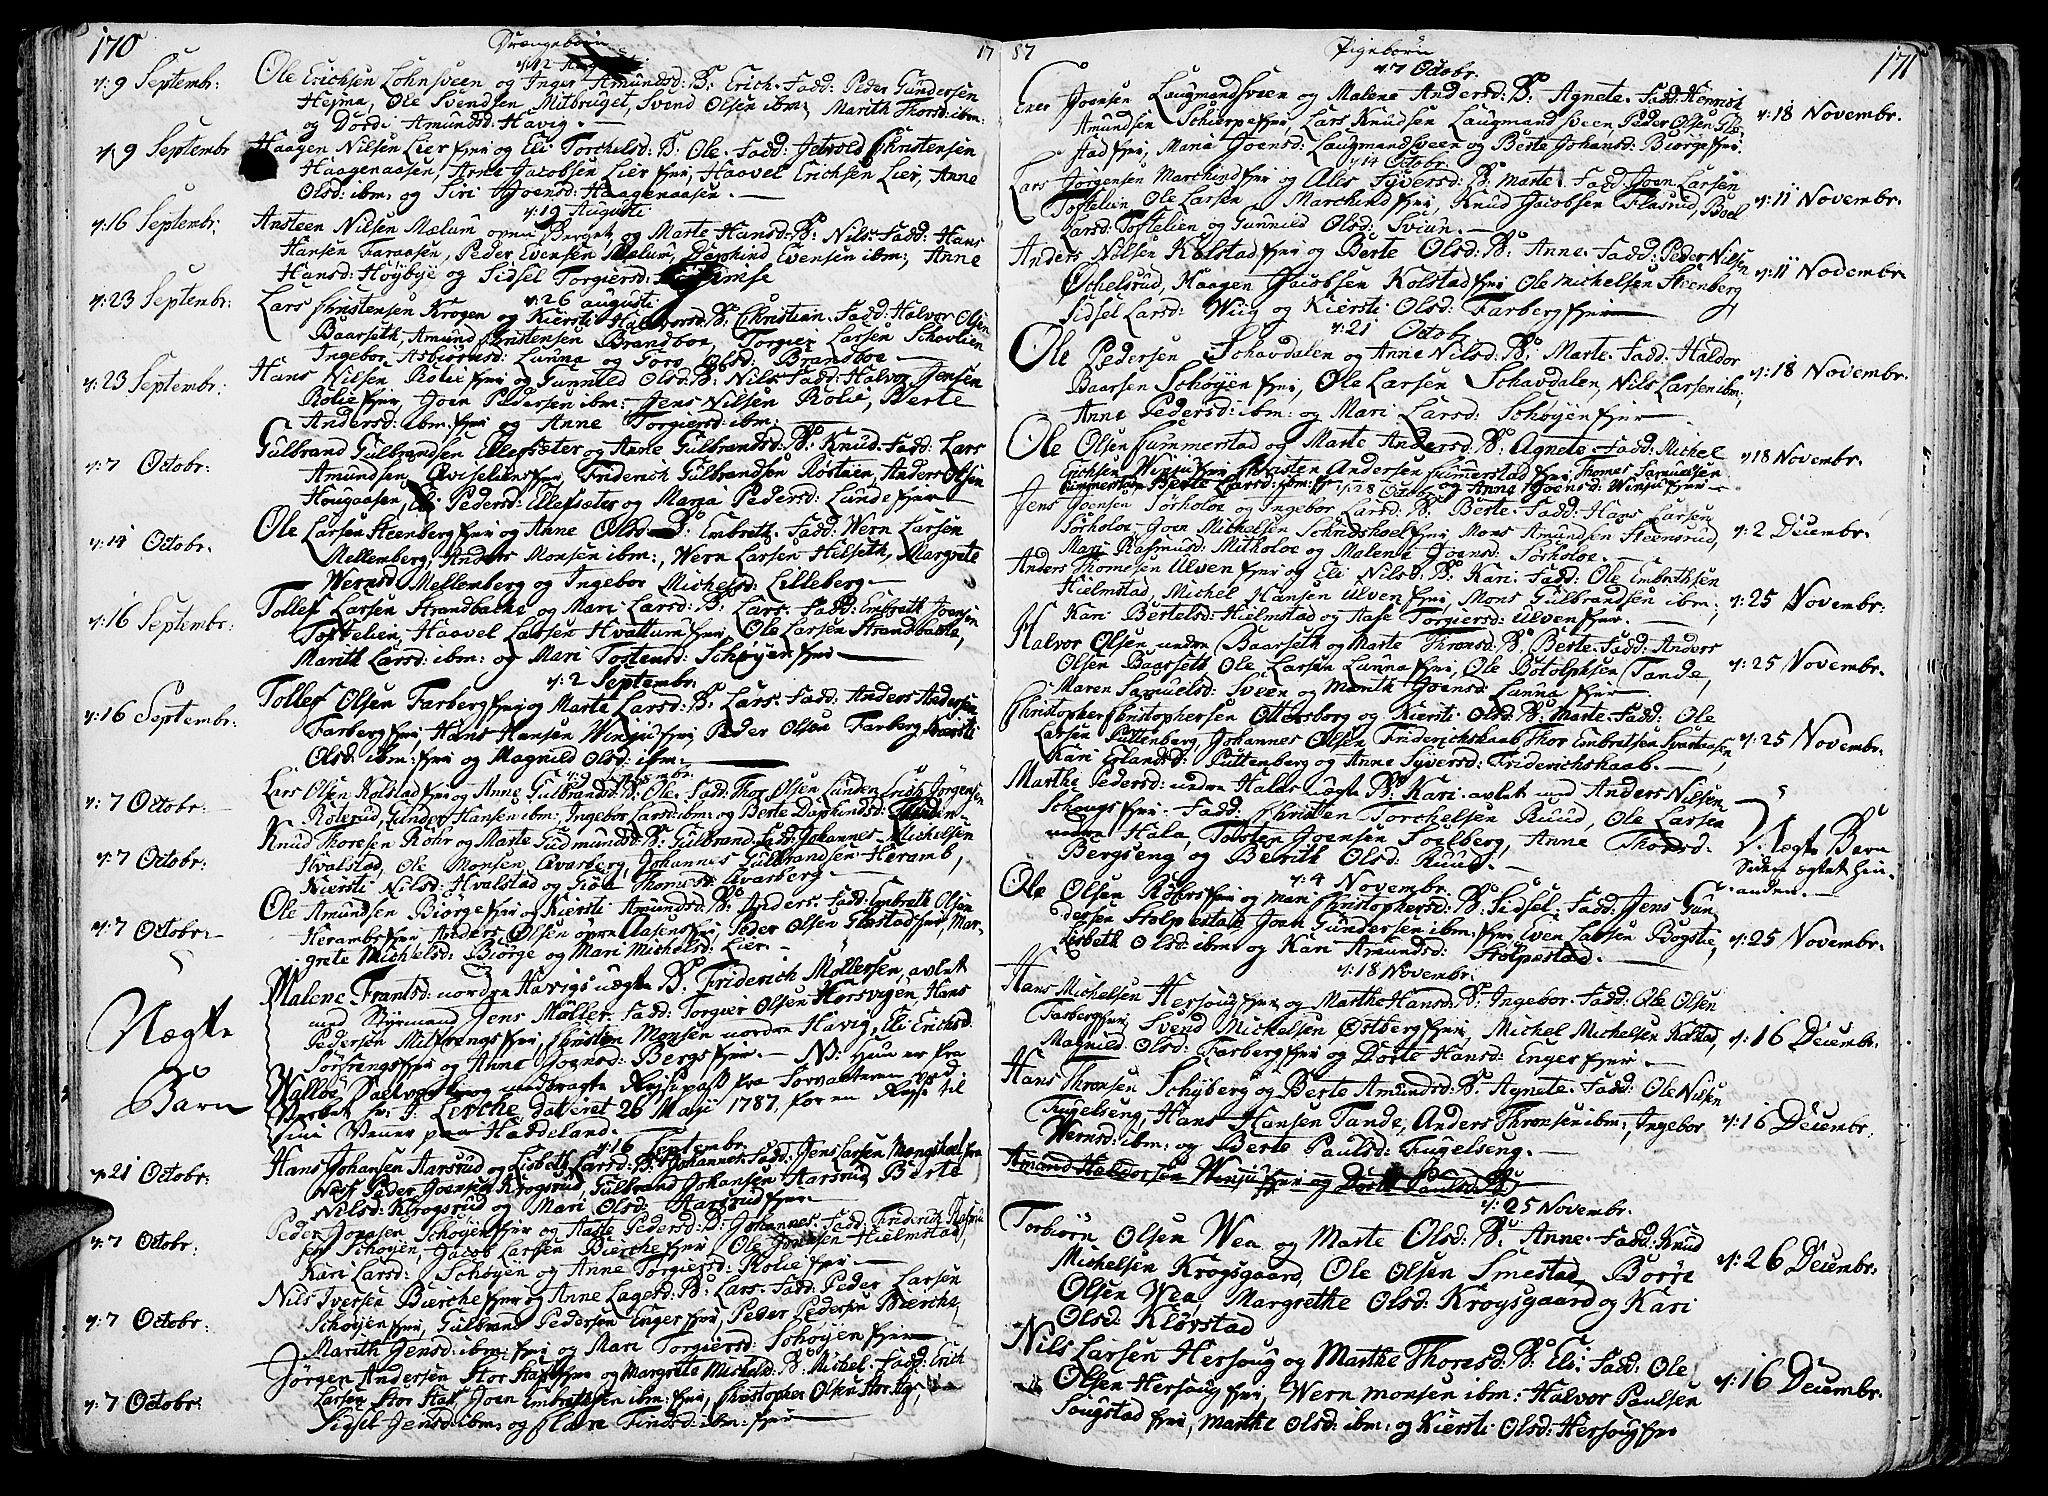 170
Drængebörn
17
d: 9 Septembr:
Ole Erichsen Lohnsveen og Inger Amundsd: B: Erich. Fadd: Peder Gundersen
Hejma, Ole Svendsen Mitbrugel, Svend Olsen ibm; Marith Thorsd: ibm:
og Dordi Amundsd: Havig.
d: 9 Septembr
Haagen Nilsen Lier hr: og Eli Torchelsd: B: Ole. Fadd: Christensen
Haagenaasen, Arne Jacobsen Lier hr:, Haavel Erichsen Lier, Anne
Olsd: ibm: og Siri Joensd: Haagenaasen.
d: 19 Augusti
d: 16 Septembr:
Ansteen Nilsen Mælum og Marte Hansd: B: Nils. Fadd: Hans
Hansen Taraasen, Peder Evensen Mælum, Daphind Evensen ibm:, Anne
Hansd: Höybye og Sidsel Torgiersd:
d: 26 augusti
d: 23 Septembr:
Lars Christensen Krogen og Kiersti Halvorsd: B: Christian. Fadd: Halvor Olsen
Baarseth, Amund Christensen Brandboe, Torgier Larsen Schovlien
Ingebor Asbiörnsd: Lunna og Toro Olsd: Brandboe
d: 23 Septembr:
Hans Nilsen Rolie og Gunnild Olsd: B: Nils. Fadd: Halvor Jensen
Rolie, Joen Pedersen ibm: Jens Nilsen Rolie, Berte
Andersd: ibm: og Anne Torgiersd: ibm:
d: 7 Octobr:
Gulbrand Gulbrandsen Ellefsæter og Anne Gulbrandsd: B: Knud. Fadd: Lars
Amundsen, Friderich Gulbrandsen Röstuen, Anders Olsen
Hougaasen, Eli Pedersd: Ellefsæter og Maria Pedersd: Lunde
d: 14 Octobr.
Ole Larsen Steenberg og Anne Olsd: B: Embreth. Fadd: Wern Larsen
Mellemberg, Anders Monsen ibm:, Wern Larsen Hilseth, Margrete
Wernsd: Mellemberg og Ingebor Michelsd: Lilleberg.
d: 16 Septembr:
Tollef Larsen Strandbacke og Mari Larsd: B: Lars. Fadd: Embreth Joensen
Toftelien, Haavel Larsen Hvattum, Ole Larsen Strandbacke,
Marith Larsd: ibm: og Mari Tostensd: Schöyen
d: 2 Septembr:
d: 16 Septembr:
Tollef Olsen Farberg og Marte Larsd: B: Lars. Fadd: Anders Andersen
Farberg, Hans Hansen Winjud, Peder Olsen Farberg, Kiersti
Olsd: ibm: og Magnild Olsd: ibm:
d: 7 Octobr:
Lars Olsen Kolstad og Anne Gulbrandsd: B: Ole. Fadd: Thor Olsen Lunden, Erich Jörgensen
Roterud, Gunder Hansen ibm:, Ingebor Larsd: ibm: og Berte Daphindsd: Lunden
d: 7 Octobr:
Knud Thoresen Röhr og Marte Gudmundsd: B: Gulbrand. Fadd: Johannes Michelsen
Hvalstad, Ole Monsen Qvarberg, Johannes Gulbrandsen Heramb,
Kiersti Nilsd: Hvalstad og Giöa Thomasd: Qvarberg.
d: 7 Octobr:
Ole Amundsen Biörge og Kiersti Amundsd: B: Anders. Fadd: Embreth Olsen
Heramb, Anders Olsen Aasen, Peder Olsen Glæstad, Mar-
grete Michelsd: Biörge og Mari Michelsd: Lier.
Nægte
Barn
Malene Frantsd: nordre Havigs nægte B: Friderich Möllersen, avlet
med Styrmand Jens Möller. Fadd: Torgier Olsen Horsvigen, Hans
Pedersen, Christen Monsen nordre Havig, Eli Erichsd:
og Anne Joensd: Berg. N: Hun er fra
medbragte Reisepass fra Forvalteren ved
Lerche dateret 26 Maji 1787, for en Reise til
sine Venner paa Haddeland.
d: 16 Septembr.
d: 21 Octobr:
Hans Johansen Aarsrud og Lisbeth Larsd: B: Johannes. Fadd: Jens Larsen
Peder Joensen Krogsrud, Gulbrand Johansen Aarsrud, Berte
Nilsd: Krogsrud og Mari Olsd: Aarsrud
d: 7 Octobr:
Peder Jonasen Schöyen og Aase Pedersd: B: Johannes. Fadd: Friderich Rasmu-
sen Schöyen, Jacob Larsen Bierche, Ole Jensen Hielmstad,
Kari Larsd: Schöyen og Anne Torgiersd: Rolie
d: 7 Octobr:
Nils Iversen Bierche og Anne Lagesd: B: Lars. Fadd: Peder Larsen
Schöyen, Gulbrand Pedersen Enger, Peder Pedersen Bierche
Marith Jensd: ibm: og Mari Torgiersd: Schöyen
d: 7 Octobr:
Jörgen Andersen Stor Hage og Margrete Michelsd: B: Michel. Fadd: Erich
Larsen Stor Hage, Joen Embrethsen ibm:, Christopher Olsen Stor
Sidsel Jensd: ibm: og Finsd: ibm:
87
Pigebörn
171
d: 7 Octobr.
Ener Joensen Laugmandsveen og Malene Andersd: B: Agnete. Fadd: Henrich
Amundsen Schierpe, Lars Knudsen Laugmandsveen, Peder Olsen Glæ-
stad, Maria Joensd: Laugmandsveen og Berte Johansd: Biörge
d: 18 Novembr.
d: 14 Octobr.
Lars Jörgensen Marchind og Ales Syversd: B: Marte. Fadd: Joen Larsen
Toftelien, Ole Larsen Marchind, Knud Jacobsen Flasrud, Boel
Larsd: Toftelien og Gunnild Olsd: Sviun.
d: 11 Novembr.
Anders Nilsen Kolstad og Berte Olsd: B: Anne. Fadd: Peder Nilsen
Öchelsrud, Haagen Jacobsen Kolstad, Ole Michelsen Steenberg
Sidsel Larsd: Wiig og Kiersti Olsd: Farberg
d: 11 Novembr.
d: 21 Octobr
Ole Pedersen Schavdalen og Anne Nilsd: B: Marte. Fadd: Haldor
Baarsen Schöyen, Ole Larsen Schavdalen, Nils Larsen ibm:,
Anne Pedersd: ibm: og Mari Larsd: Schöyen
d: 18 Novembr.
Ole Olsen Summerstad og Marte Andersd: B: Agnete. Fadd: Michel
Erichsen Winju, Christen Andersen Summerstad, Thomes Samuelsen
Summerstad Berte Larsd: ibm: og Anne Joensd: Winju
d: 18 Novembr.
d: 28 Octobr
Jens Joensen Sörholoe og Ingebor Larsd: B: Berte. Fadd: Hans Larsen
Sörholoe, Joen Michelsen, Mons Amundsen Steensrud,
Mari Rasmusd: Mitholoe og Malene Joensd: Sörholoe.
d: 2 Decembr.
Anders Thomesen Ulven og Eli Nilsd: B: Kari. Fadd: Ole Embrethsen
Hielmstad, Michel Hansen Ulven, Mons Gulbrandsen ibm:,
Kari Bertelsd: Hielmstad og Aase Torgiersd: Ulven.
d: 25 Novembr:
Halvor Olsen nedre Baarseth og Marte Thronsd: B: Berte. Fadd: Anders
Olsen Baarseth, Ole Larsen Lunna, Ole Botolphsen Tande,
Maren Samuelsd: Sveen og Marith Joensd: Lunna
d: 25 Novembr.
Christopher Christophersen Ottersborg og Kiersti Olsd: B: Marte. Fadd: Ole
Larsen Puttenberg, Johannes Olsen Friderichskaab, Thor Embretsen Svartaasen,
Kari Erlandsd: Puttenberg og Anne Syversd: Friderichskaab.
d: 25 Novembr.
Marthe Pedersd: nedre Halas nægte B: Kari avlet med Anders Nilsen
Schougs. Fadd: Christen Torchelsen Ruud, Ole Larsen
nedre Hala, Tosten Joensen Soelberg, Anne Thorsd:
Bergseng og Berith Olsd: Ruud.
Nægte Barn
siden ægtet hin-
anden.
d: 4 Novembr.
Ole Olsen Röhr og Mari Christophersd: B: Sidsel. Fadd: Jens Gun-
dersen Stolpestad, Joen Gundersen ibm:, Iwen Larsen Bogstie,
Lisbeth Olsd: ibm: og Kari Amundsd: Stolpestad.
d: 25 Novembr.
d: 18 Novembr:
Hans Michelsen Hersoug og Marthe Hansd: B: Ingebor. Fadd: Ole Olsen
Farberg, Svend Michelsen Östberg, Michel Michelsen
Magnild Olsd: Farberg og Dorte Hansd: Enger
d: 16 Decembr.
Hans Thronsen Schyberg og Berte Amundsd: B: Agnete. Fadd: Ole Nilsen
Fugelseng, Hans Hansen Tande, Anders Thronsen ibm:, Ingebor
Wernsd: ibm: og Berte Paulsd: Fugelseng.
d: 16 Decembr.
Amund Haldorsen Winju og Dorte Paulsd: B:
d: 25 Novembr.
Torbiörn Olsen Wea og Marte Olsd: B: Anne. Fadd: Knud
Michelsen Krogsgaard, Ole Olsen Smestad, Börre
Olsen Wea, Margrethe Olsd: Krogsgaard og Kari
Olsd: Klörstad
d: 26 Decembr.
Nils Larsen Hersoug og Marthe Thoresd: B: Eli. Fadd: Ole
Olsen Hersoug, Wern Monsen ibm: Halvor Paulsen
Saugstad, Marthe Olsd: ibm: og Kiersti Olsd: Hersoug
d: 16 Decembr.